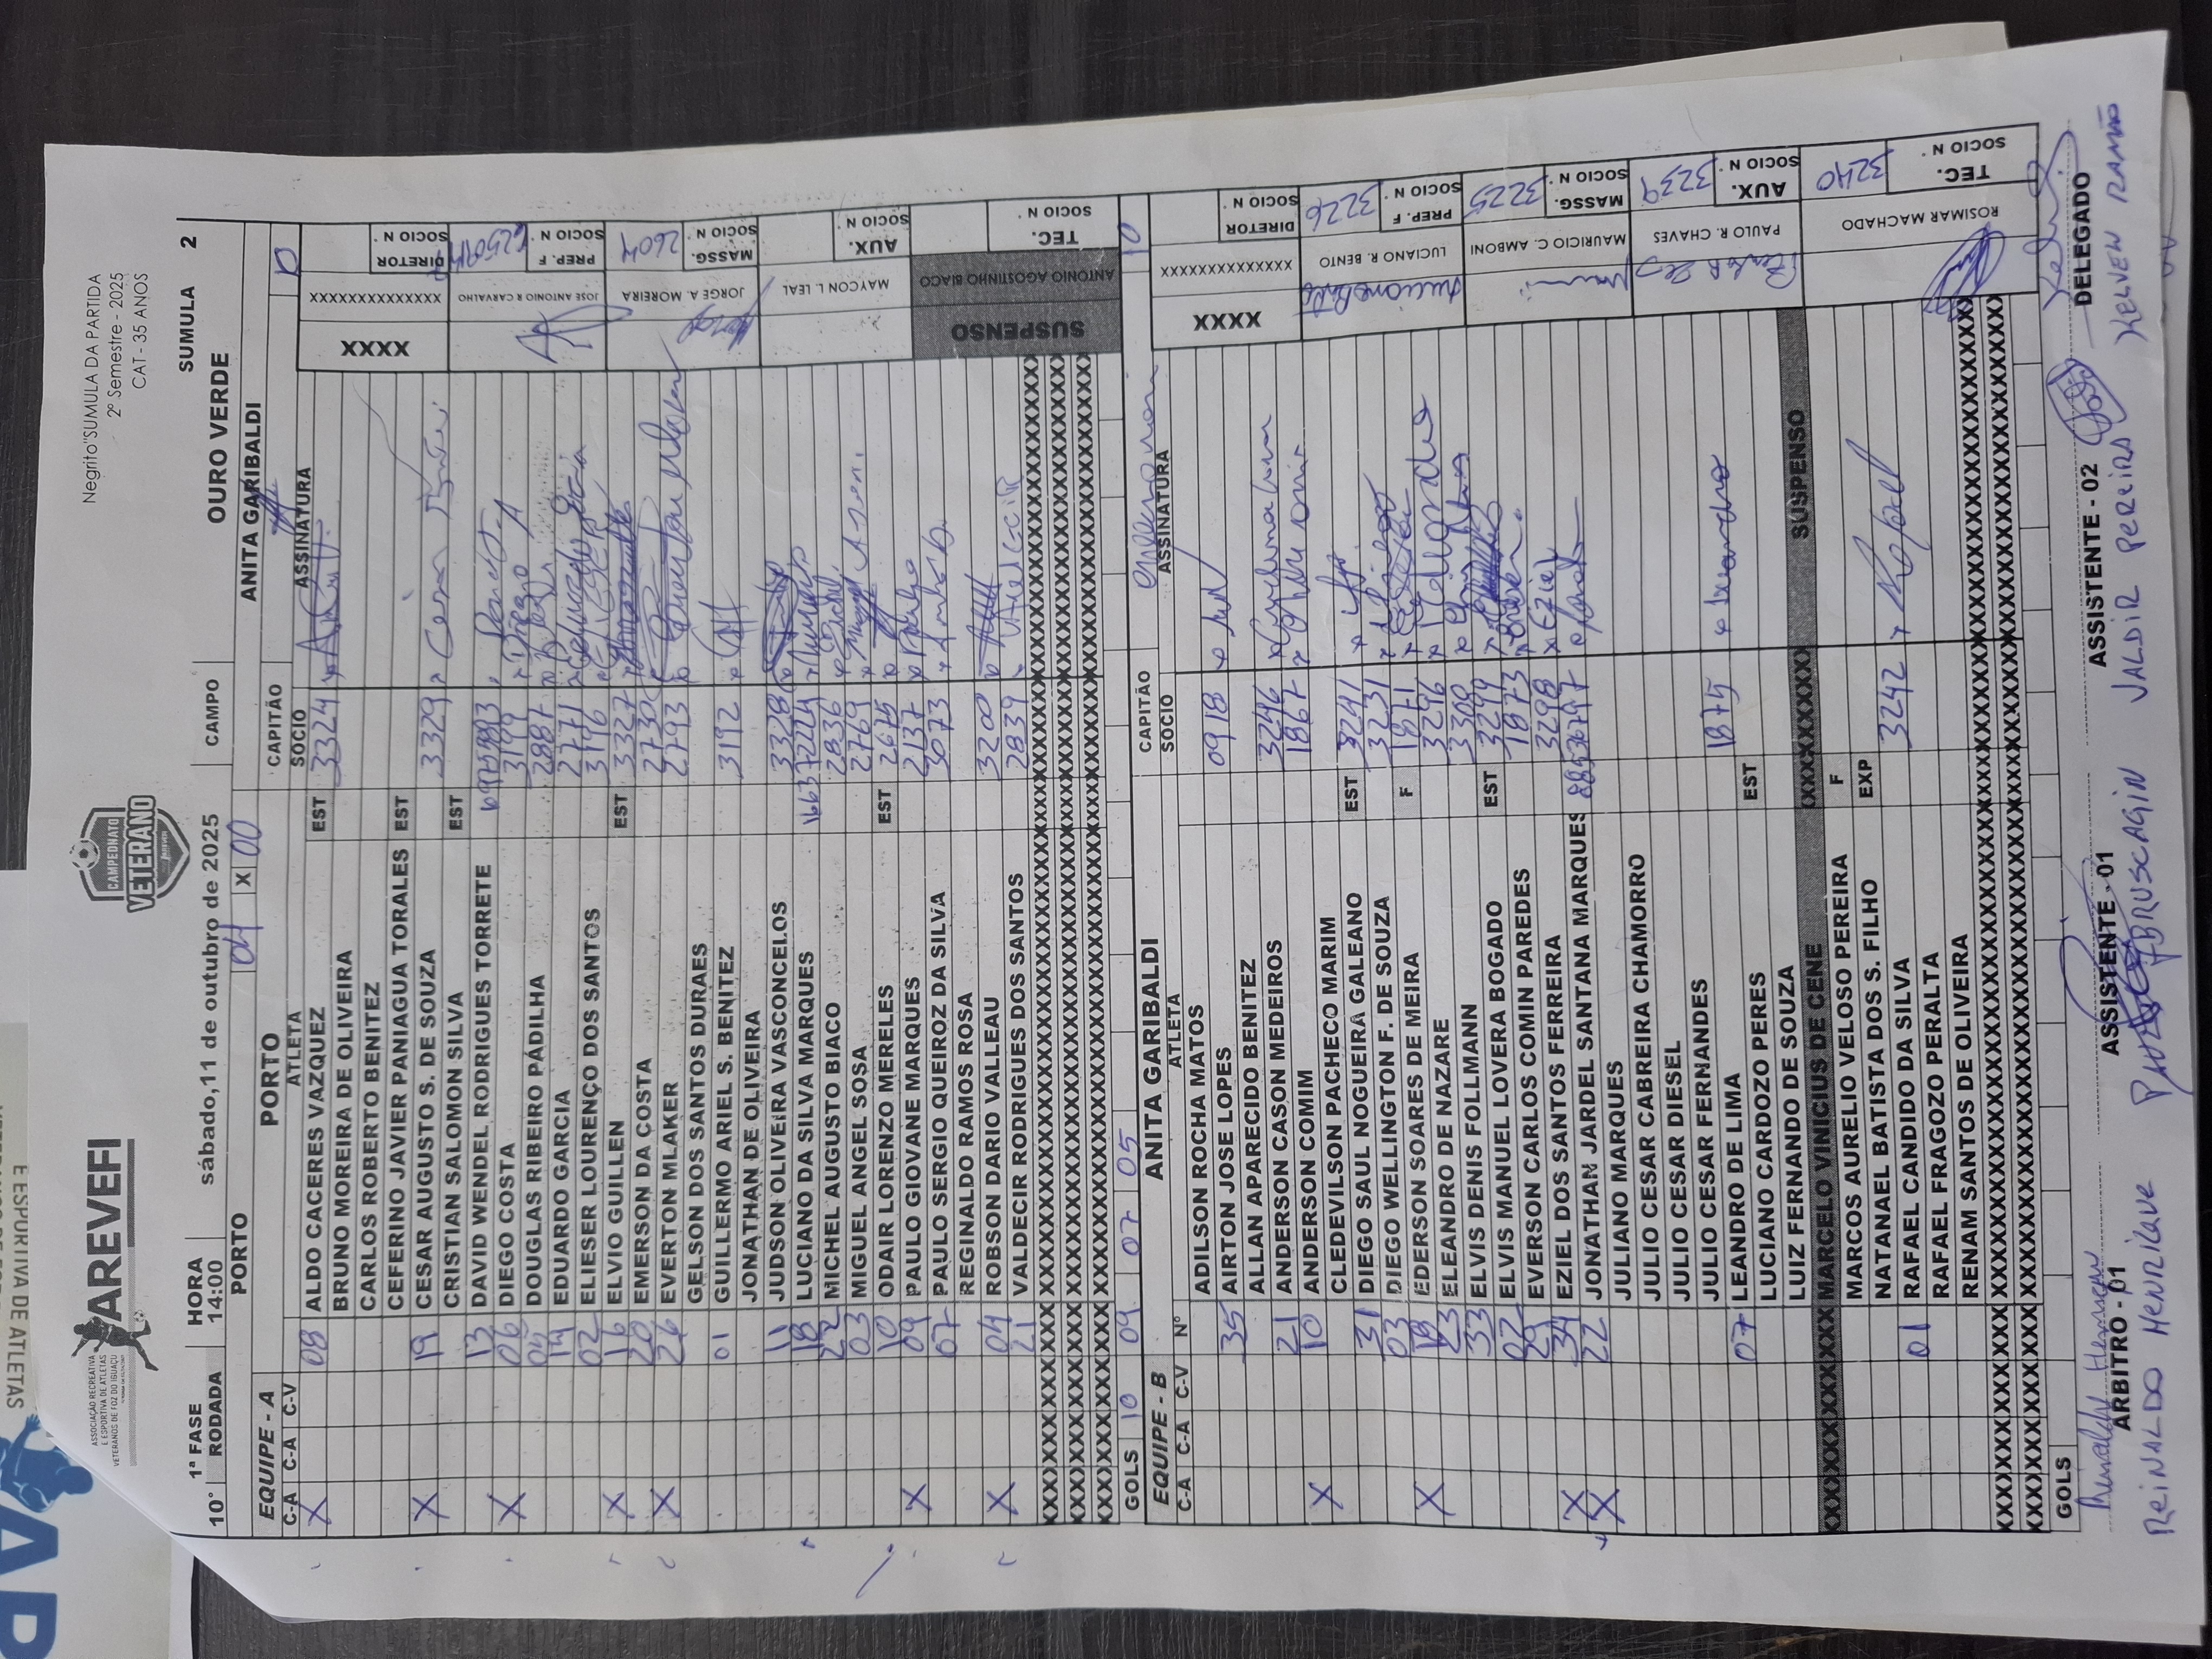 Negrito"SUMULA DA PARTIDA
2º Semestre - 2025
CAT - 35 ANOS
ASSOCIAÇÃO RECREATIVA
E ESPORTIVA DE ATLETAS
VETERANOS DE FOZ DO IGUAÇU
AREVEFI
CAMPEONATO
VETERANO
E ESPORTIVA DE ATLETAS
1ª FASE HORA sábado, 11 de outubro de 2025 CAMPO OURO VERDE SUMULA 2
10° RODADA 14:00
PORTO 04 X 00 ANITA GARIBALDI
EQUIPE - A PORTO CAPITÃO
C-A C-A C-V Nº ATLETA SOCIO ASSINATURA
X 08 ALDO CACERES VAZQUEZ EST 3324
BRUNO MOREIRA DE OLIVEIRA
CARLOS ROBERTO BENITEZ
CEFERINO JAVIER PANIAGUA TORALES EST
X 19 CESAR AUGUSTO S. DE SOUZA 3329
CRISTIAN SALOMON SILVA EST
13 DAVID WENDEL RODRIGUES TORRETE
X 06 DIEGO COSTA 3199 Diego
DOUGLAS RIBEIRO PADILHA 2887
14 EDUARDO GARCIA 2771
02 ELIESER LOURENÇO DOS SANTOS 3196
X 16 ELVIO GUILLEN EST 3327
20 EMERSON DA COSTA 2730
X 26 EVERTON MLAKER 2793
GELSON DOS SANTOS DURAES
01 GUILLERMO ARIEL S. BENITEZ 3192
JONATHAN DE OLIVEIRA
11 JUDSON OLIVEIRA VASCONCELOS 3328
18 LUCIANO DA SILVA MARQUES
22 MICHEL AUGUSTO BIACO 2836
03 MIGUEL ANGEL SOSA 2769
10 ODAIR LORENZO MERELES EST 2675
X 09 PAULO GIOVANE MARQUES 2137
07 PAULO SERGIO QUEIROZ DA SILVA 3073
REGINALDO RAMOS ROSA
X 04 ROBSON DARIO VALLEAU 3200
21 VALDECIR RODRIGUES DOS SANTOS 2839
XXXX XXXXXXXXXXXXXXX DIRETOR SOCIO N°
JOSE ANTONIO R CARVALHO PREP. F SOCIO N°
JORGE A. MOREIRA MASSG. SOCIO N° 2604
MAYCON L. LEAL AUX. SOCIO N°
SUSPENSO ANTONIO AGOSTINHO BIACO TEC. SOCIO N°
GOLS 10 09 07 05
EQUIPE - B ANITA GARIBALDI CAPITÃO Anderson 10
C-A C-A C-V Nº ATLETA SOCIO ASSINATURA
ADILSON ROCHA MATOS
35 AIRTON JOSE LOPES 0918
ALLAN APARECIDO BENITEZ
21 ANDERSON CASON MEDEIROS 3246
X 10 ANDERSON COMIM 1867
CLEDEVILSON PACHECO MARIM
31 DIEGO SAUL NOGUEIRA GALEANO EST 3241
03 DIEGO WELLINGTON F. DE SOUZA 3231
X 18 EDERSON SOARES DE MEIRA F 1871
23 ELEANDRO DE NAZARE 3296
33 ELVIS DENIS FOLLMANN 3300
02 ELVIS MANUEL LOVERA BOGADO EST 3299
29 EVERSON CARLOS COMIN PAREDES 1873
X 34 EZIEL DOS SANTOS FERREIRA 3298 Eziel
X 22 JONATHAN JARDEL SANTANA MARQUES
JULIANO MARQUES
JULIO CESAR CABREIRA CHAMORRO
JULIO CESAR DIESEL
JULIO CESAR FERNANDES
07 LEANDRO DE LIMA 1875 Leandro
LUCIANO CARDOZO PERES EST
LUIZ FERNANDO DE SOUZA
MARCELO VINICIUS DE CENE SUSPENSO
MARCOS AURELIO VELOSO PEREIRA F
NATANAEL BATISTA DOS S. FILHO EXP
01 RAFAEL CANDIDO DA SILVA 3242 Rafael
RAFAEL FRAGOZO PERALTA
RENAM SANTOS DE OLIVEIRA
XXXX XXXXXXXXXXXXXXX DIRETOR SOCIO N°
LUCIANO R. BENTO PREP. F SOCIO N° 3226
MAURICIO C. AMBONI MASSG. SOCIO N° 3225
PAULO R. CHAVES AUX. SOCIO N° 3239
ROSIMAR MACHADO TEC. SOCIO N° 3240
GOLS
ARBITRO - 01 ASSISTENTE - 01 ASSISTENTE - 02 DELEGADO
REINALDO HENRIQUE BRUSCAGIN VALDIR PEREIRA KELVEN RAMÃO